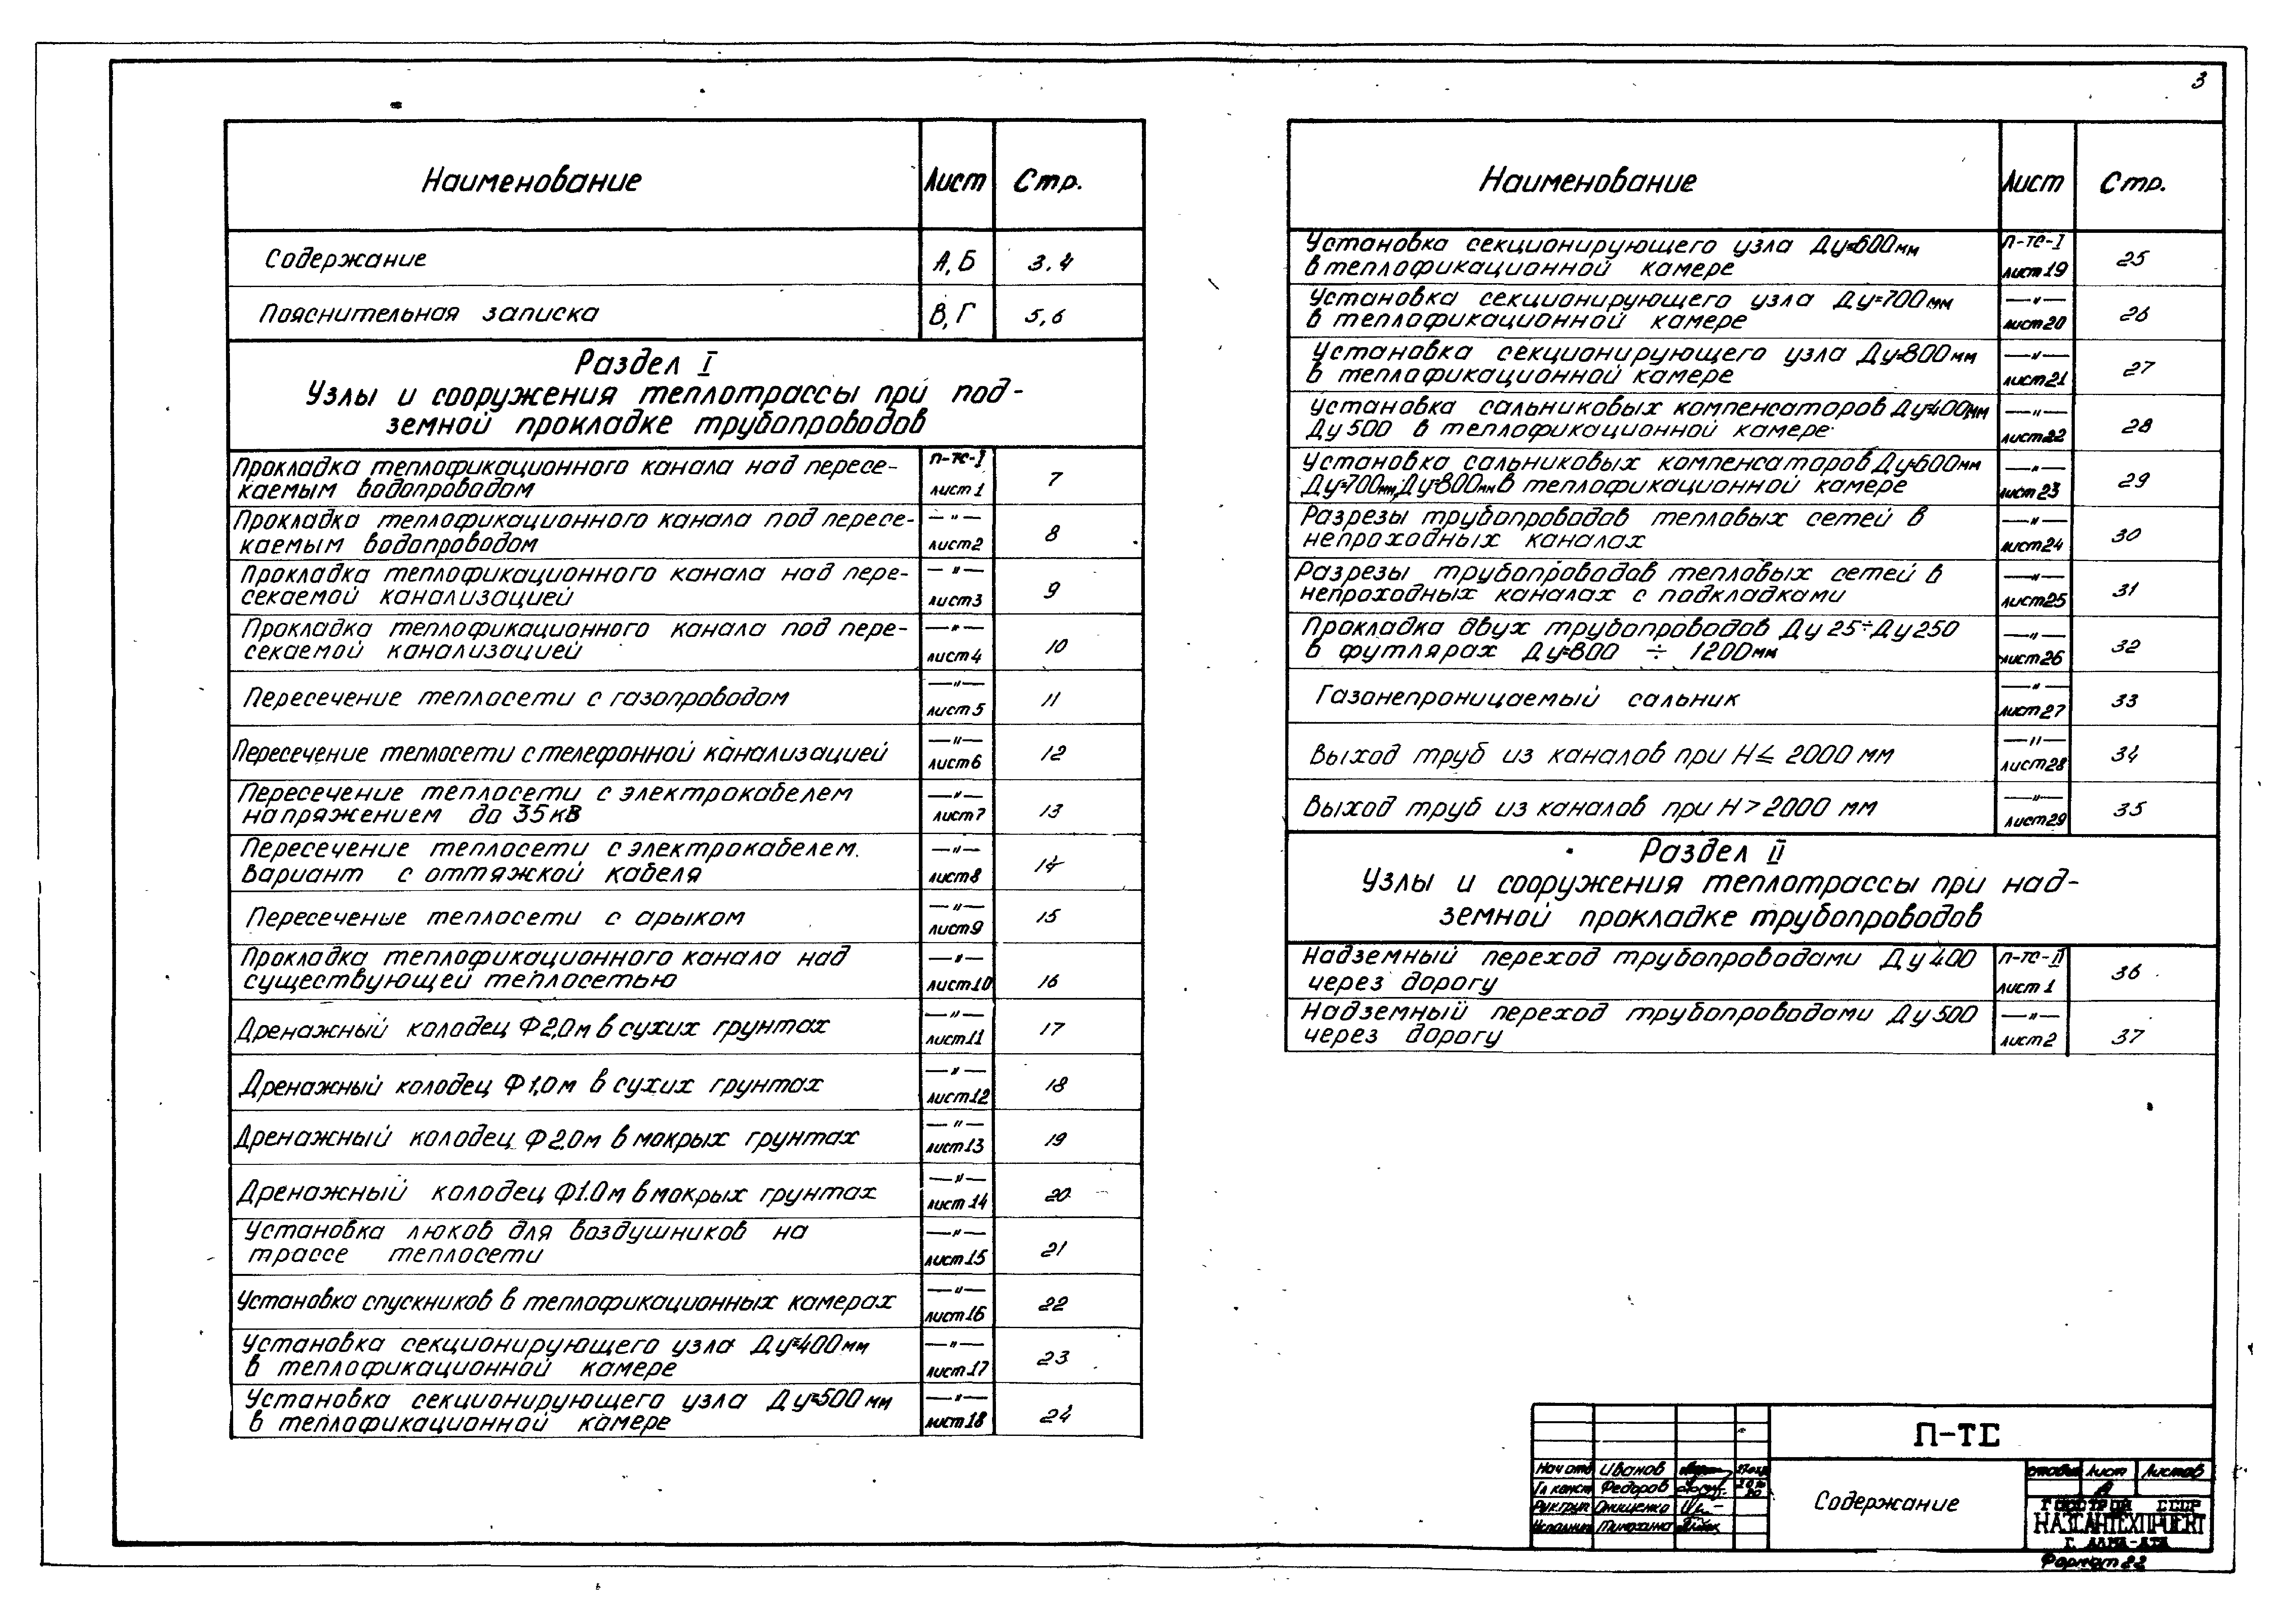 3
Наименование Лист Стр.
Содержание А, Б 3, 4
Пояснительная записка В, Г 5, 6
Раздел I
Узлы и сооружения теплотрассы при под-
земной прокладке трубопроводов
Прокладка теплофикационного канала над пересе- п-тс-I
каемым водопроводом лист 1 7
Прокладка теплофикационного канала под пересе- —"—
каемым водопроводом лист 2 8
Прокладка теплофикационного канала над пере- —"—
секаемой канализацией лист 3 9
Прокладка теплофикационного канала под пере- —"—
секаемой канализацией лист 4 10
Пересечение теплосети с газопроводом —"— лист 5 11
Пересечение теплосети с телефонной канализацией —"— лист 6 12
Пересечение теплосети с электрокабелем —"—
напряжением до 35 кВ лист 7 13
Пересечение теплосети с электрокабелем. —"—
Вариант с оттяжкой кабеля лист 8 14
Пересечение теплосети с арыком —"— лист 9 15
Прокладка теплофикационного канала над —"—
существующей теплосетью лист 10 16
Дренажный колодец Ф 2,0 м в сухих грунтах —"— лист 11 17
Дренажный колодец Ф 1,0 м в сухих грунтах —"— лист 12 18
Дренажный колодец Ф 2.0 м в мокрых грунтах —"— лист 13 19
Дренажный колодец Ф 1.0 м в мокрых грунтах —"— лист 14 20
Установка люков для воздушников на —"—
трассе теплосети лист 15 21
Установка спускников в теплофикационных камерах —"— лист 16 22
Установка секционирующего узла Ду=400 мм —"—
в теплофикационной камере лист 17 23
Установка секционирующего узла Ду=500 мм —"—
в теплофикационной камере лист 18 24
Наименование Лист Стр.
Установка секционирующего узла Ду=600 мм п-тс-I
в теплофикационной камере лист 19 25
Установка секционирующего узла Ду=700 мм —"—
в теплофикационной камере лист 20 26
Установка секционирующего узла Ду=800 мм —"—
в теплофикационной камере лист 21 27
Установка сальниковых компенсаторов Ду=400 мм —"—
Ду 500 в теплофикационной камере лист 22 28
Установка сальниковых компенсаторов Ду=600 мм —"—
Ду=700 мм, Ду=800 мм в теплофикационной камере лист 23 29
Разрезы трубопроводов тепловых сетей в —"—
непроходных каналах лист 24 30
Разрезы трубопроводов тепловых сетей в —"—
непроходных каналах с подкладками лист 25 31
Прокладка двух трубопроводов Ду 25÷Ду 250 —"—
в футлярах Ду=800 ÷ 1200 мм лист 26 32
Газонепроницаемый сальник —"— лист 27 33
Выход труб из каналов при Н ≤ 2000 мм —"— лист 28 34
Выход труб из каналов при Н > 2000 мм —"— лист 29 35
Раздел II
Узлы и сооружения теплотрассы при над-
земной прокладке трубопроводов
Надземный переход трубопроводами Ду 400 п-тс-II
через дорогу лист 1 36
Надземный переход трубопроводами Ду 500 —"—
через дорогу лист 2 37
П-ТС
Нач отд Иванов
Гл конст Федоров
Рук.груп Онищенко
Исполнил Тимохина
Содержание
Стадия Лист Листов
ГОССТРОЙ СССР
КАЗСАНТЕХПРОЕКТ
Г. АЛМА-АТА
Формат 22